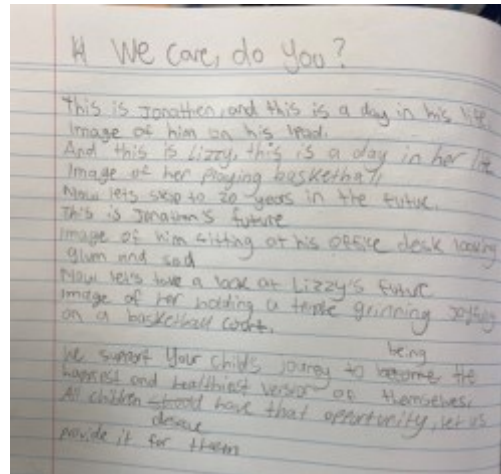 We care, do you?
This is Jonathen, and this is a day in his life
Image of him on his Ipad.
And this is Lizzy, this is a day in her life
Image of her playing basketball
Now lets skip to 20 years in the future.
This is Jonathan's future
Image of him sitting at his office desk looking
glum and sad
Now let's take a look at Lizzy's future
Image of her holding a grinning joyfully
on a basketball court.
being
We support your child's jouney to become the
happiest and healthiest version of themselves.
All children should have that opportunity, let us
deserve
provide it for them